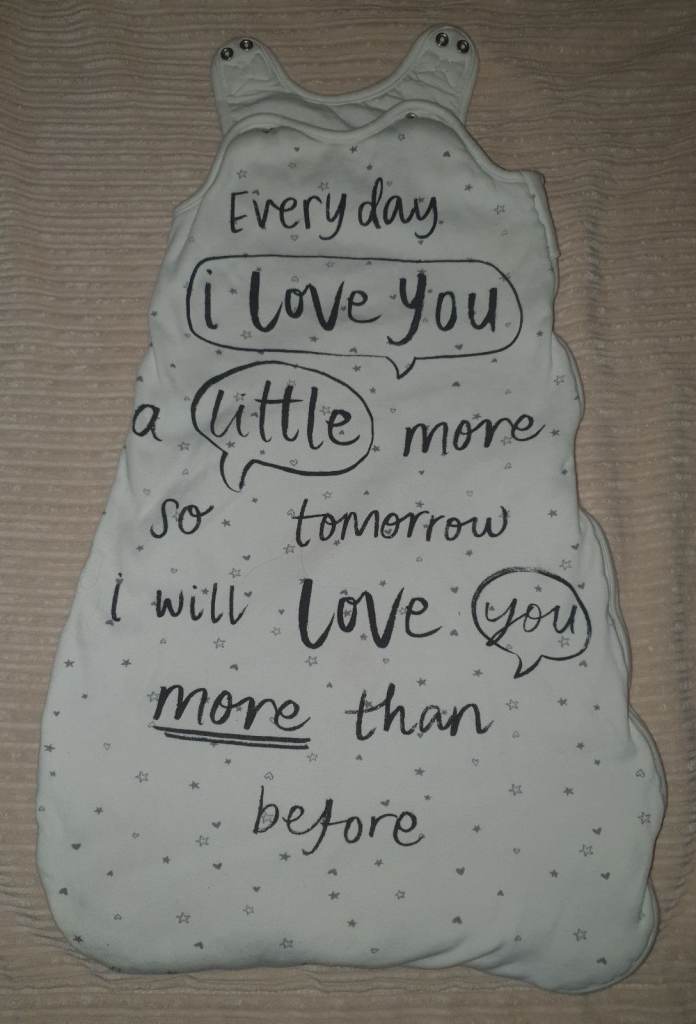 Every day
i love you
a little more
so tomorrow
i will love you
more than
before